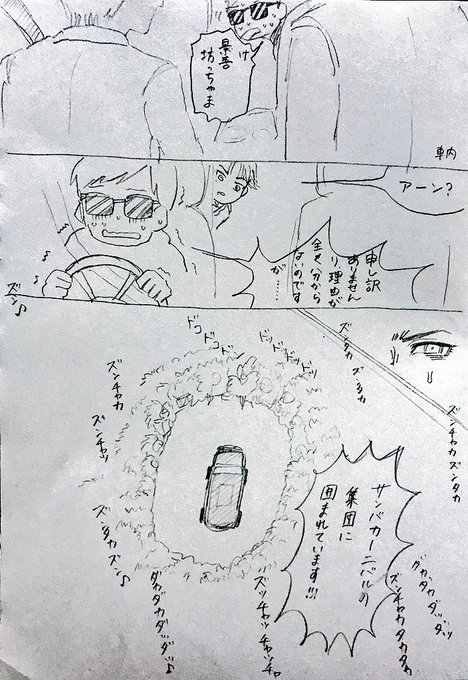 け
景吾
坊っちゃま
車内
アーン?
申し訳
ありません
り、理由が
全く分から
ないのです
が……
ズン♪
ズンタカ
ズンタカ
ドコドコドコ
ドッドッドッ
ズンチャカ
ズンチャッ
ズンチャカズンタカ
サンバカーニバルの
集団に
囲まれています!!!
ズンタカズン♪
ダカダカダッダッ♪
ズッチャッチャッチャ
ダカダカダッダッ
ズンチャカタカタカ